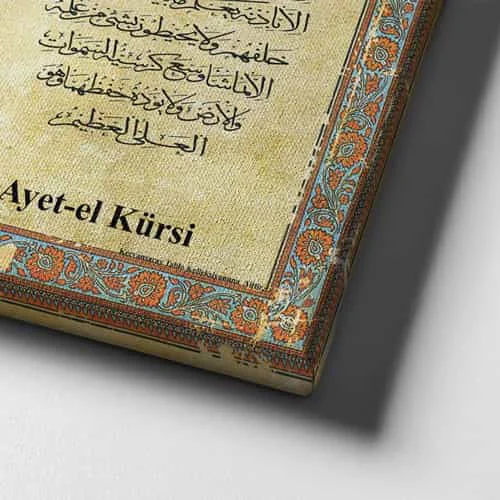 الا باذنه يعلم
خلفهم ولا يحيطون بشئ من علمه
الا بما شاء وسع كرسيه السموات
والارض ولا يؤده حفظهما وهو
العلى العظيم
Ayet-el Kürsi